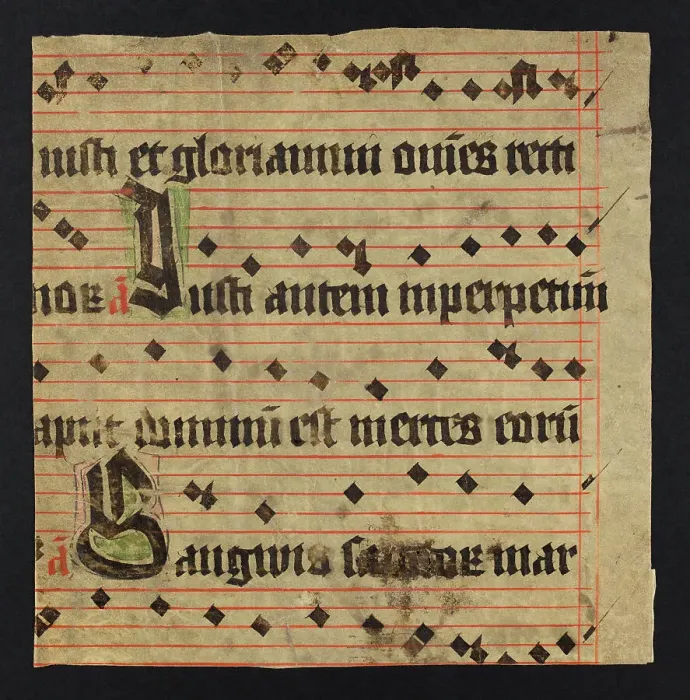 iusti et gloriamini om̄es recti
noe ā Iusti autem inperpetuū
aput dominū est merces eorū
ā Sanguis sanctoꝝ mar